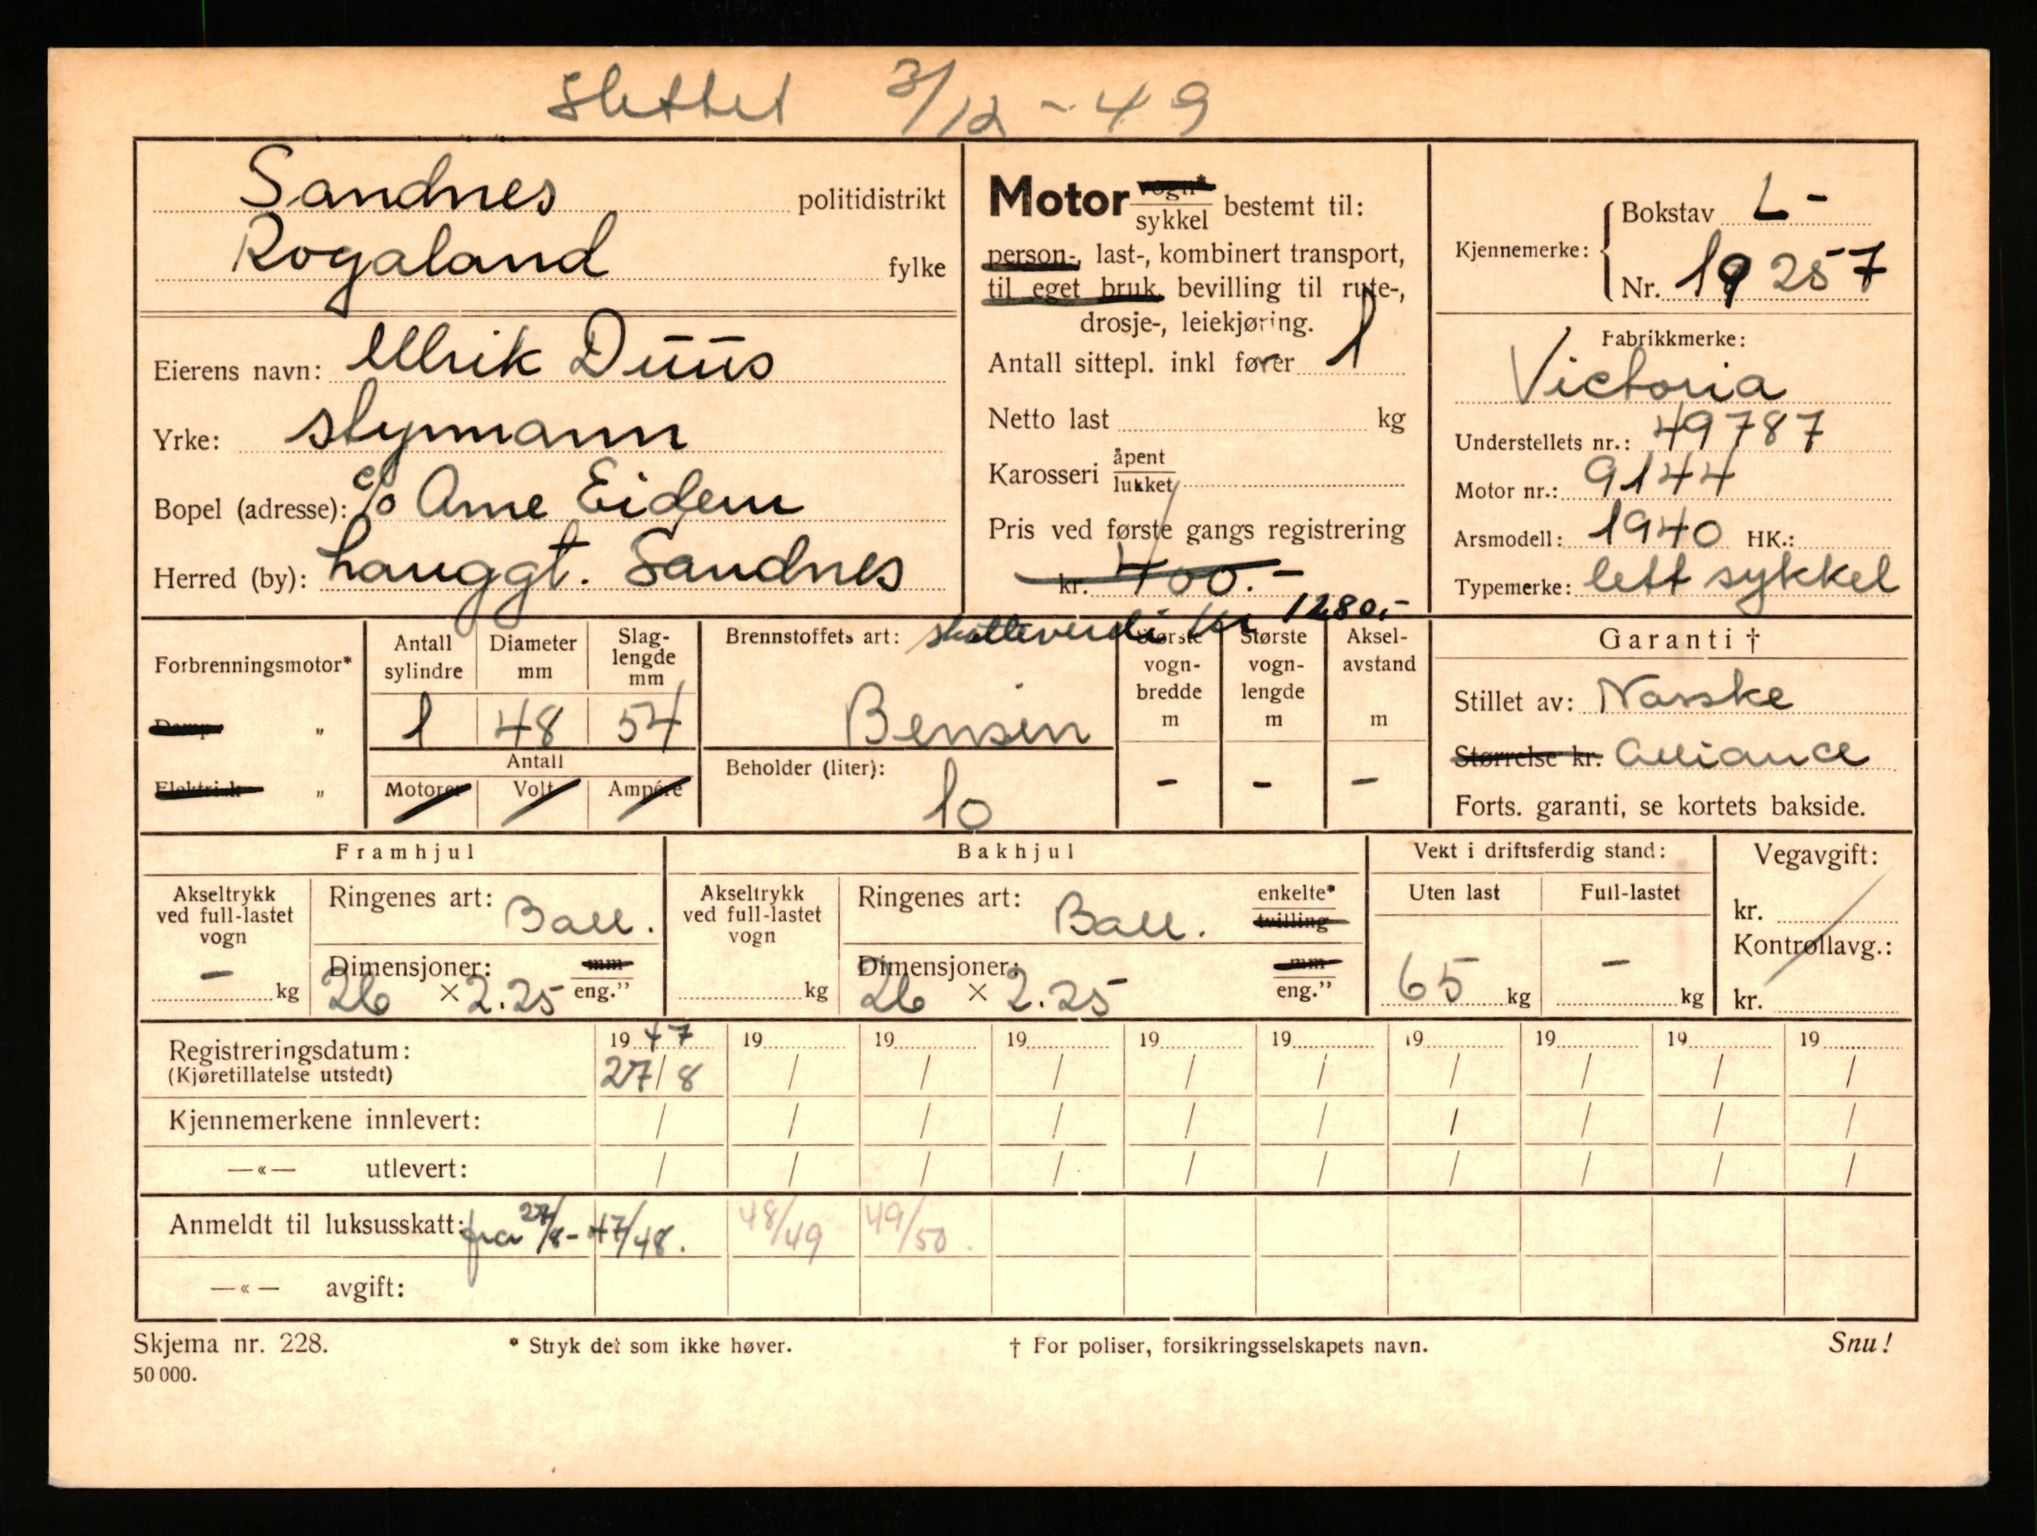 Slettet 3/12-49
Sandnes politidistrikt
Rogaland fylke
Eierens navn: Ulrik Duus
Yrke: styrmann
Bopel (adresse): c/o Arne Eidem
Herred (by): Langgt. Sandnes
Motor vogn* / sykkel bestemt til:
person-, last-, kombinert transport,
til eget bruk, bevilling til rute-,
drosje-, leiekjøring.
Antall sittepl. inkl fører 1
Netto last kg
Karosseri åpent / lukket
Pris ved første gangs registrering
kr. 400.-
skatteverdi kr 1280,-
Kjennemerke: Bokstav L-
Nr. 19257
Fabrikkmerke:
Victoria
Understellets nr.: 49787
Motor nr.: 9144
Arsmodell: 1940 HK.:
Typemerke: lett sykkel
Forbrenningsmotor*
Damp "
Elektrisk "
Antall sylindre
Diameter mm
Slag-lengde mm
1 48 54
Antall
Motorer Volt Ampére
Brennstoffets art:
Bensin
Beholder (liter):
10
Største vogn-bredde m
Største vogn-lengde m
Aksel-avstand m
- - -
Garanti †
Stillet av: Norske
Størrelse kr. Alliance
Forts. garanti, se kortets bakside.
Framhjul
Akseltrykk ved full-lastet vogn
- kg
Ringenes art: Ball.
Dimensjoner: mm
26 × 2.25 eng."
Bakhjul
Akseltrykk ved full-lastet vogn
kg
Ringenes art: Ball. enkelte* tvilling
Dimensjoner: mm
26 × 2.25 eng."
Vekt i driftsferdig stand:
Uten last Full-lastet
65 kg - kg
Vegavgift:
kr.
Kontrollavg.:
kr.
Registreringsdatum: 1947 19 19 19 19 19 19 19 19 19
(Kjøretillatelse utstedt) 27/8 / / / / / / / / /
Kjennemerkene innlevert: / / / / / / / / / /
—«— utlevert: / / / / / / / / / /
Anmeldt til luksusskatt: fra 27/8-47/48. 48/49 49/50.
—«— avgift:
Skjema nr. 228. * Stryk det som ikke høver. † For poliser, forsikringsselskapets navn. Snu!
50 000.